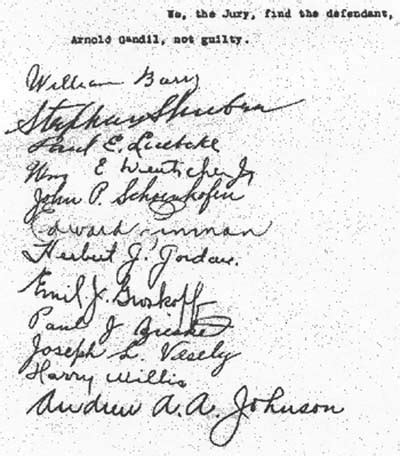 We, the Jury, find the defendant,
Arnold Gandil, not guilty.
William Barry
Stephan Shuban
Paul E. Luebcke
Wm E
John P. Schoenhofen
Edward Inman
Herbert J. Jordan.
Emil J. Groskopf
Paul J
Joseph L. Vesely
Harry Willis
Andrew A. A. Johnson